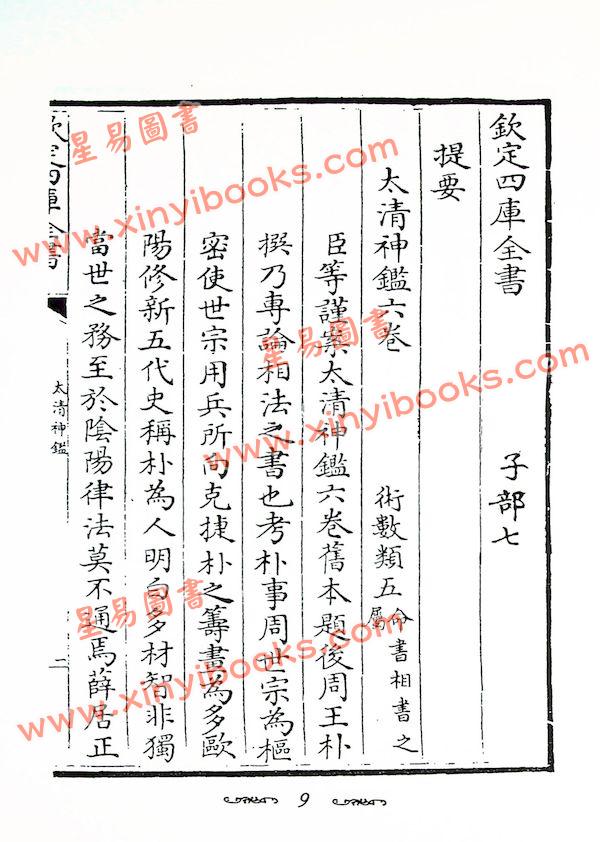 欽定四庫全書 子部七
提要
太清神鑑六卷 術數類五 命書相書之屬
臣等謹案太清神鑑六卷舊本題後周王朴
撰乃專論相法之書也考朴事周世宗為樞
密使世宗用兵所向克捷朴之籌畫為多歐
陽修新五代史稱朴為人明白多材智非獨
當世之務至於陰陽律法莫不通焉薛居正
欽定四庫全書
太清神鑑
二
9
星易圖書
www.xinyibooks.com
星易圖書
www.xinyibooks.com
星易圖書
www.xinyibooks.com